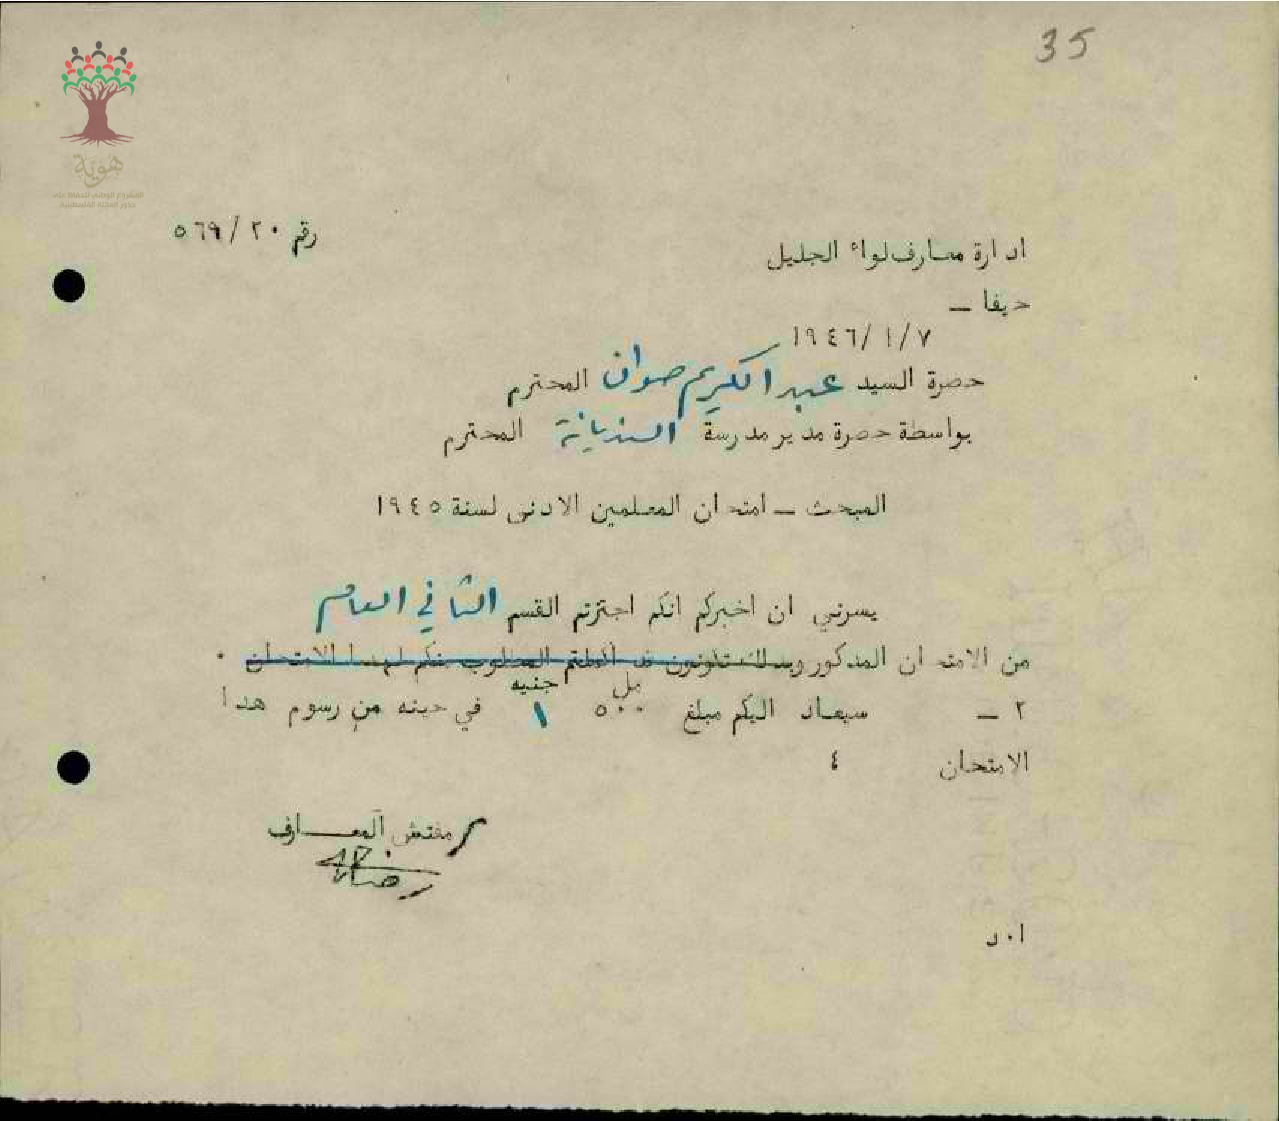 35
هوية
المشروع الوطني للحفاظ على
جذور العائلة الفلسطينية
رقم ٢٠/٥٦٩
ادارة معارف لواء الجليل
حيفا —
١٩٤٦/١/٧
حضرة السيد عبد الكريم صوان المحترم
بواسطة حضرة مدير مدرسة السنديانة المحترم
المبحث — امتحان المعلمين الادنى لسنة ١٩٤٥
يسرني ان اخبركم انكم اجتزتم القسم الثاني العام
من الامتحان المذكور وبذلك تكونون قد اكملتم المطلوب منكم لهذا الامتحان .
مل جنيه
٢ — سيعاد اليكم مبلغ ٥٠٠ ١ في حينه من رسوم هذا
الامتحان ٤
مفتش المعارف
ا٠د